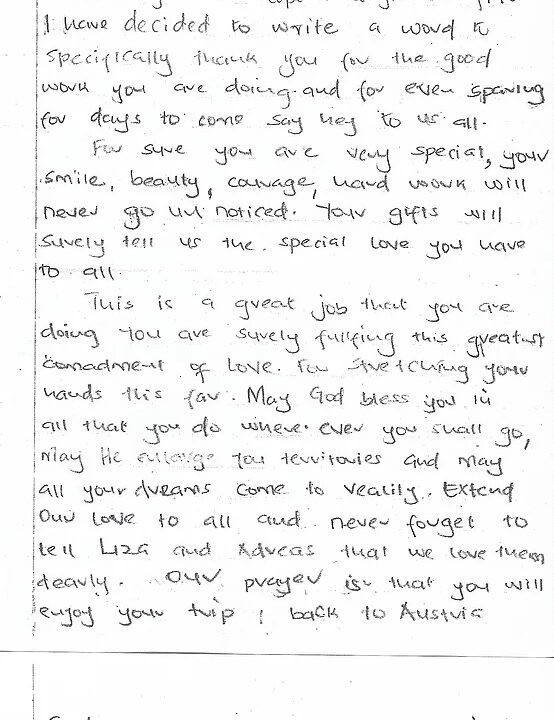 I have decided to write a word to
specifically thank you for the good
work you are doing and for even sparing
for days to come say hey to us all.
For sure you are very special, your
smile, beauty, courage, hard work will
never go un noticed. Your gifts will
surely tell us the special love you have
to all.
This is a great job that you are
doing you are surely fulfing this greatest
comadment of love. For stretching your
hands this far. May God bless you in
all that you do where ever you shall go,
may He enlarge you territories and may
all your dreams come to reality. Extend
Our love to all and never forget to
tell Liza and Adreas that we love them
dearly. Our prayer is that you will
enjoy your trip back to Austria